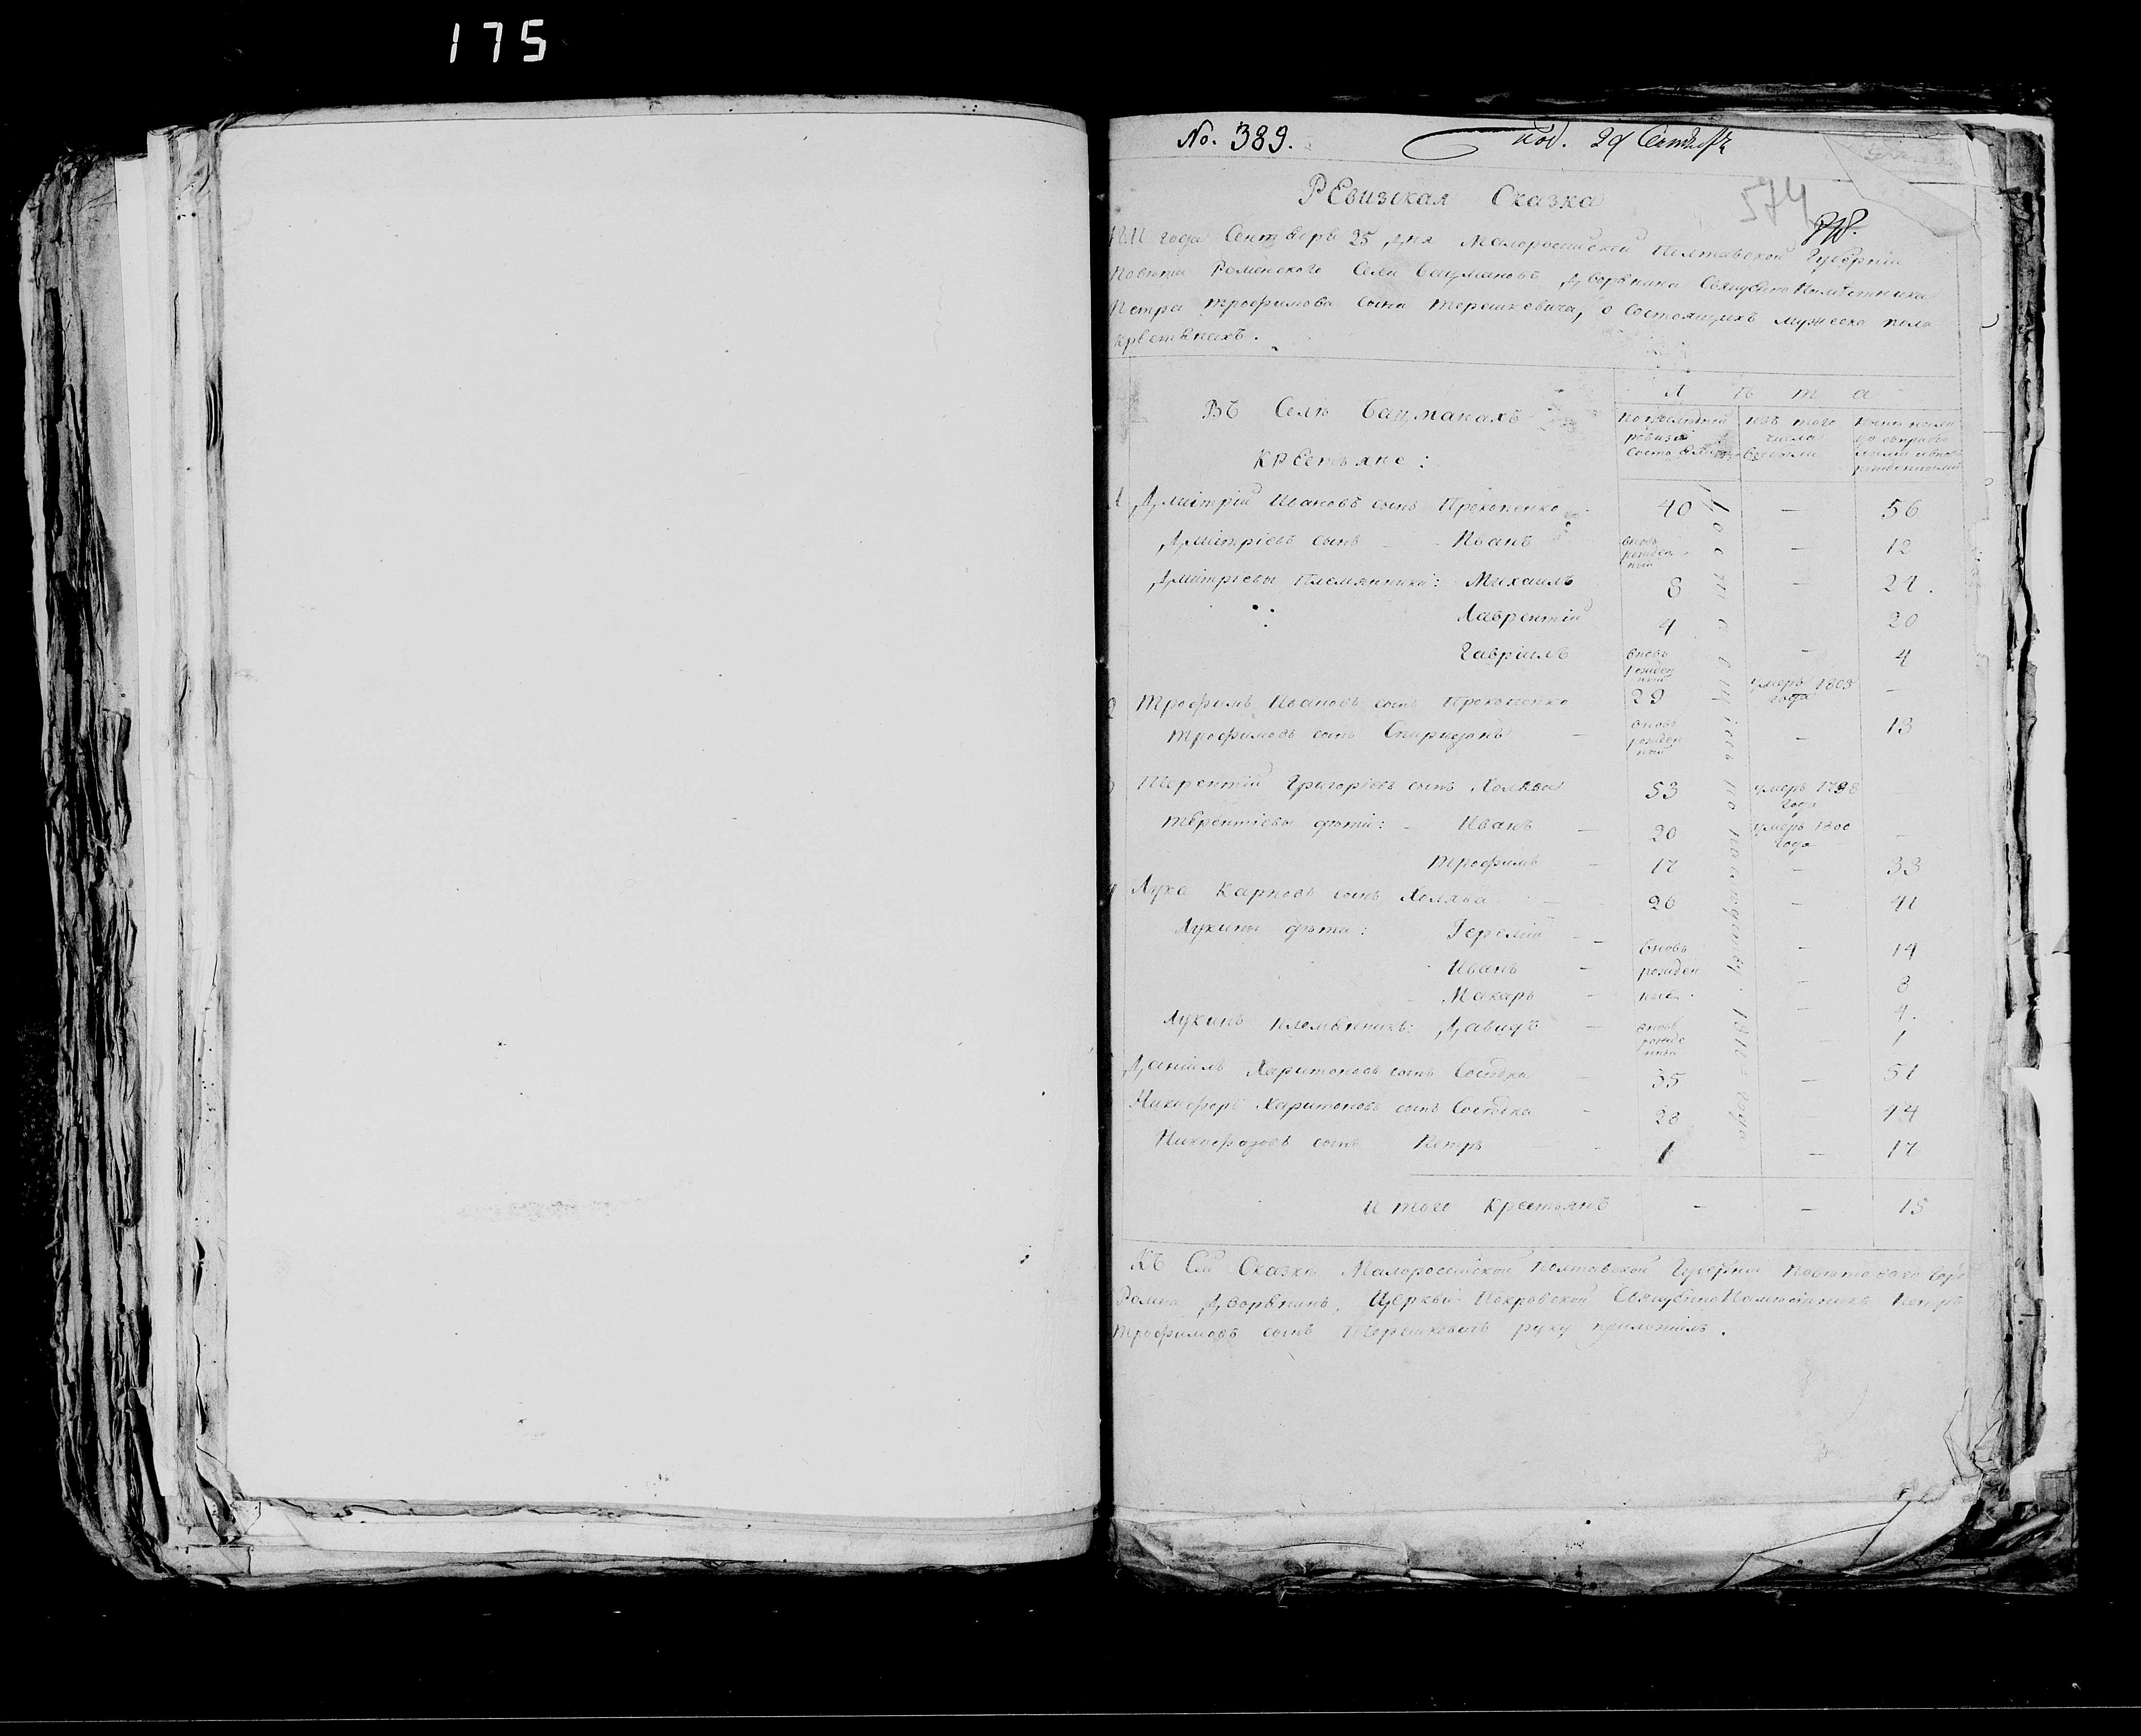 175
No. 389.
под. 29 Сентября
574
Ревизская Сказка
1811 года Сентября 25 дня Малоросийской Полтавской Губерніи
Повѣта Роменского Села Бацмановъ Дворянина Священнонамѣстника
Петра Трофимова сына Терешкевича, о состоящихъ мужеска пола
крестянехъ.
Лѣта
Въ Селѣ Бацманахъ
По последной ревизіи состояло
Изъ того числа выбыли
Крестьяне:
До состоящіхъ по 1811 года
1 Дмитрій Ивановъ сынъ Прокопенко 40 — 56
Дмитріевъ сынъ Иванъ вновь рожденный — 12
Дмитріевы племянники: Михаилъ 8 — 24.
Лаврентій 4 20
Гавріилъ вновь рожденный — 4
2 Трофимъ Ивановъ сынъ Прокопенко 29 умеръ 1803 года —
Трофимовъ сынъ Спиридонъ — вновь рожденный — 13
Терентій Григоріевъ сынъ Холява 53 умеръ 1798 года —
Терентіевы дѣти: Иванъ — 20 умеръ 1800 года —
Трофимъ — 17 — 33
4 Лука Карповъ сынъ Холява — 26 — 41
Лукины дѣти: Іеремій — вновь — 14
Иванъ — рожден — 8
Макаръ — ные. — 4.
Лукинъ племянникъ: Давидъ — вновь рожденный — 1
Даніилъ Харитоновъ сынъ Сосѣдка — 35 — 51
Никифоръ Харитоновъ сынъ Сосѣдка — 28 — 44
Никифоровъ сынъ Петръ — 1 — 17
Итого Крестьянъ — — 15
Къ Сей Сказки Малоросийской Полтавской Губерніи Повѣтового Горо
Ромна Дворянинъ, Церкви Покровской Священнонамѣстникъ Петръ
Трофимовъ сынъ Терешкевичъ руку приложилъ.